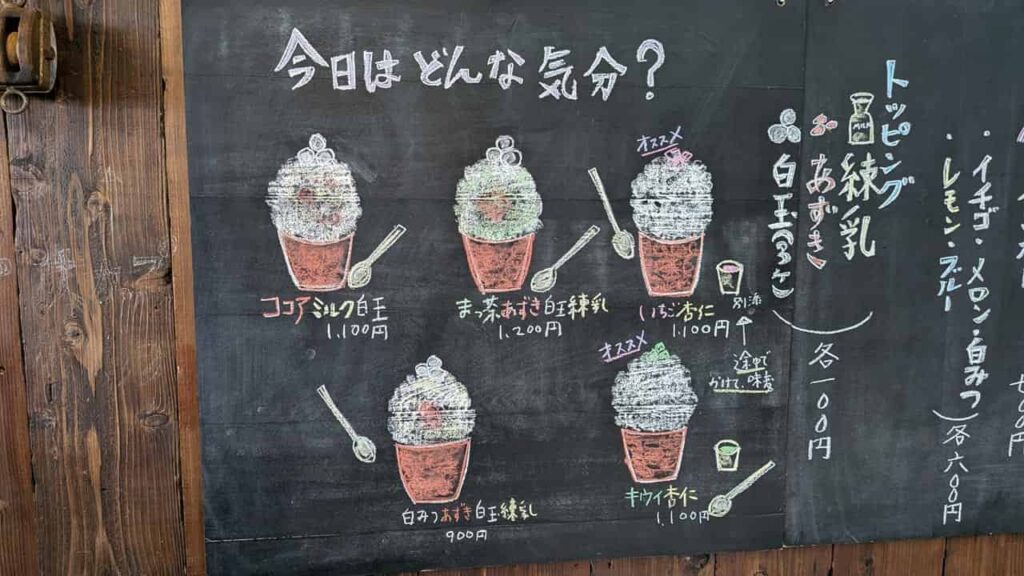 今日はどんな気分?
ココアミルク白玉
1,100円
まっ茶あずき白玉練乳
1,200円
オススメ
いちご杏仁
1,100円
別添
途中で
かけて、味変
白みつあずき白玉練乳
900円
オススメ
キウイ杏仁
1,100円
トッピング
練乳
あずき
白玉(3ケ)
各一00円
・イチゴ・メロン・白みつ
・レモン・ブルー
各六00円